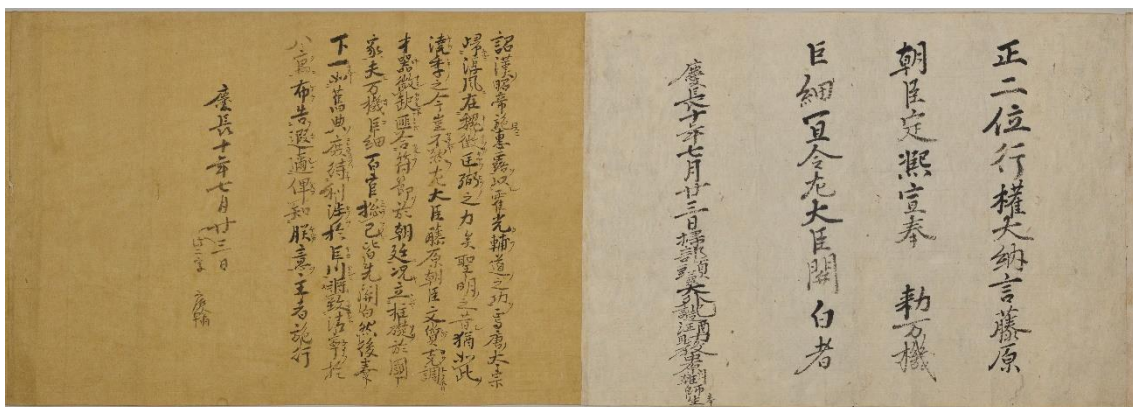 正二位行權大納言藤原
朝臣定熙宣奉 勅万機
巨細宜令左大臣關白者
慶長十年七月廿三日掃部頭大外記
詔漢昭帝施惠露以霍光輔道之功唐太宗
歸淳風在魏徵匡弼之力矣聖明之昔猶如此
澆季之今豈不然左大臣藤原朝臣文質克調
才器於朝廷況立柱礎於國
家夫万機巨細百官惣己皆先關白然後奏
下一如舊典庶得利涉於巨川將致清寧於
八 布告遐邇俾知朕意主者施行
慶長十年七月廿三日